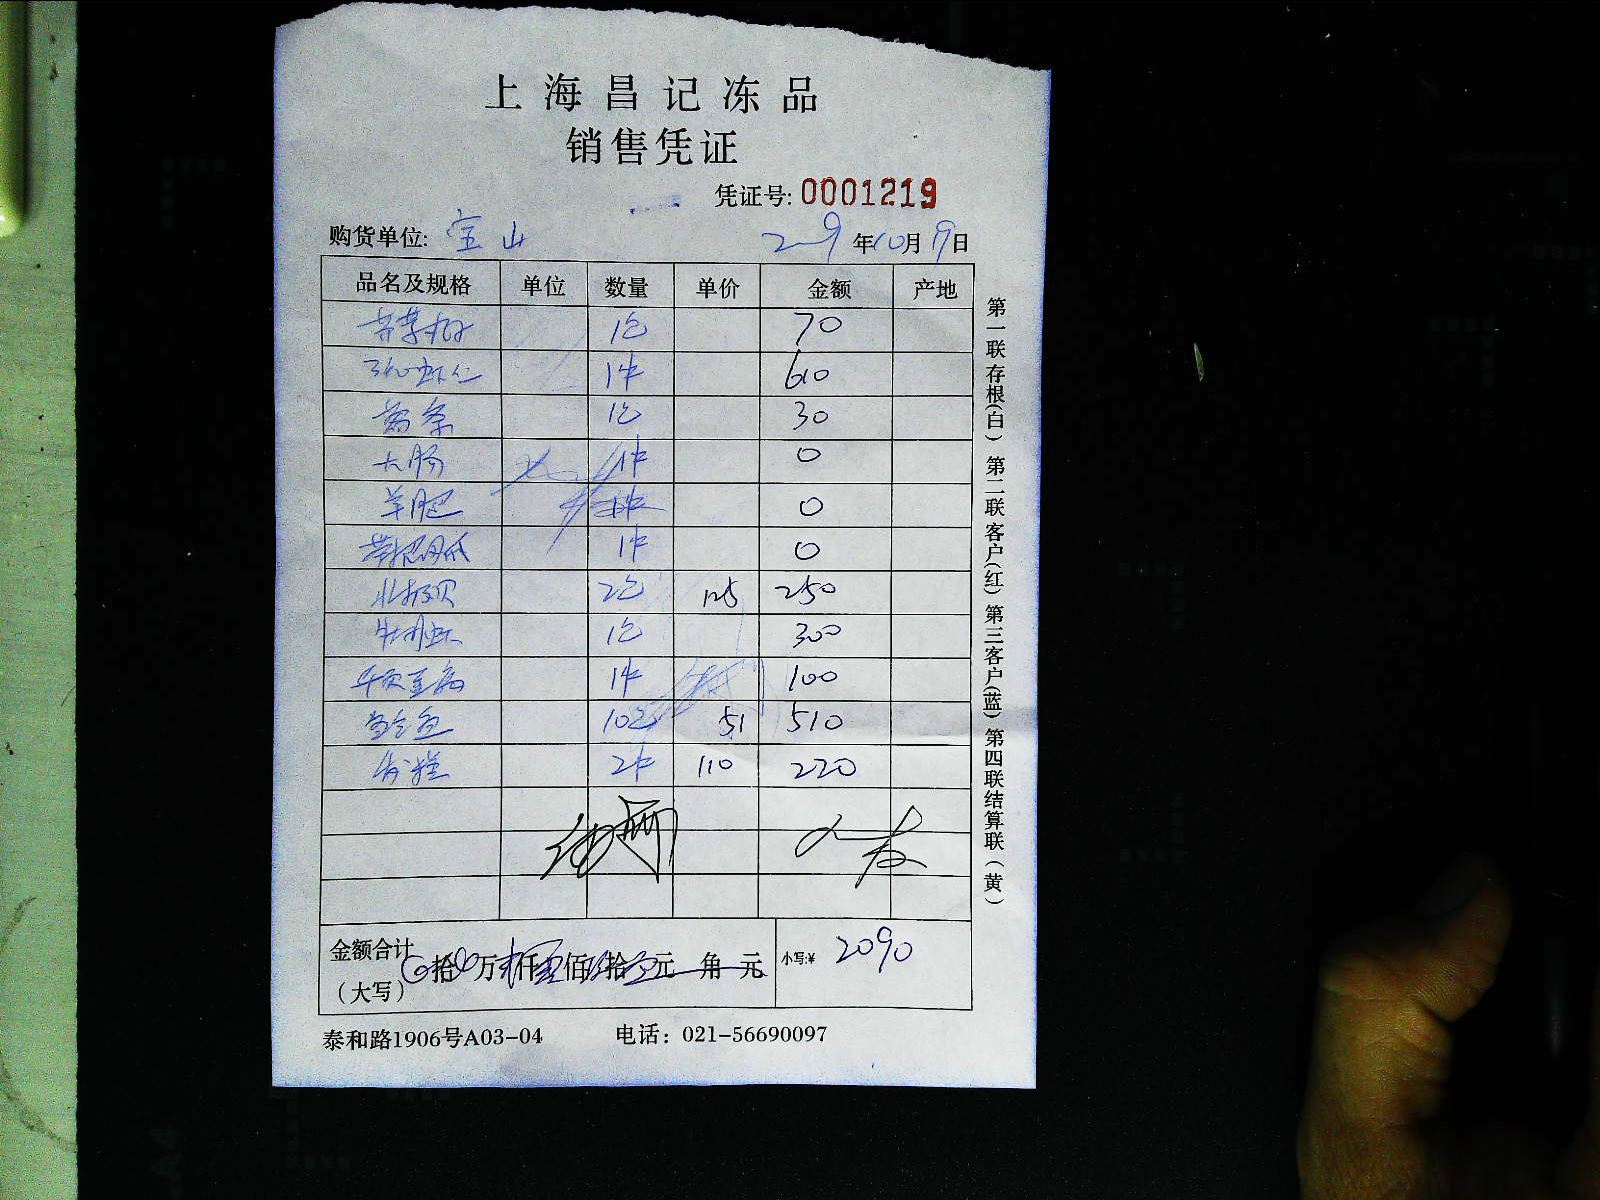 上海昌记冻品
销售凭证
凭证号: 0001219
购货单位: 宝山 年10月19日
品名及规格 单位 数量 单价 金额 产地
1包 70
虾仁 1件 610
薯条 1包 30
大肠 1件 0
羊腿 1件 0
1件 0
北极贝 2包 125 250
1包 300
千页豆腐 1件 100
10包 51 510
2件 110 220
金额合计 拾 万 仟 佰 拾 元 角 元 小写:¥ 2090
（大写）
泰和路1906号A03-04 电话：021-56690097
第一联存根(白) 第二联客户(红) 第三客户(蓝) 第四联结算联(黄)